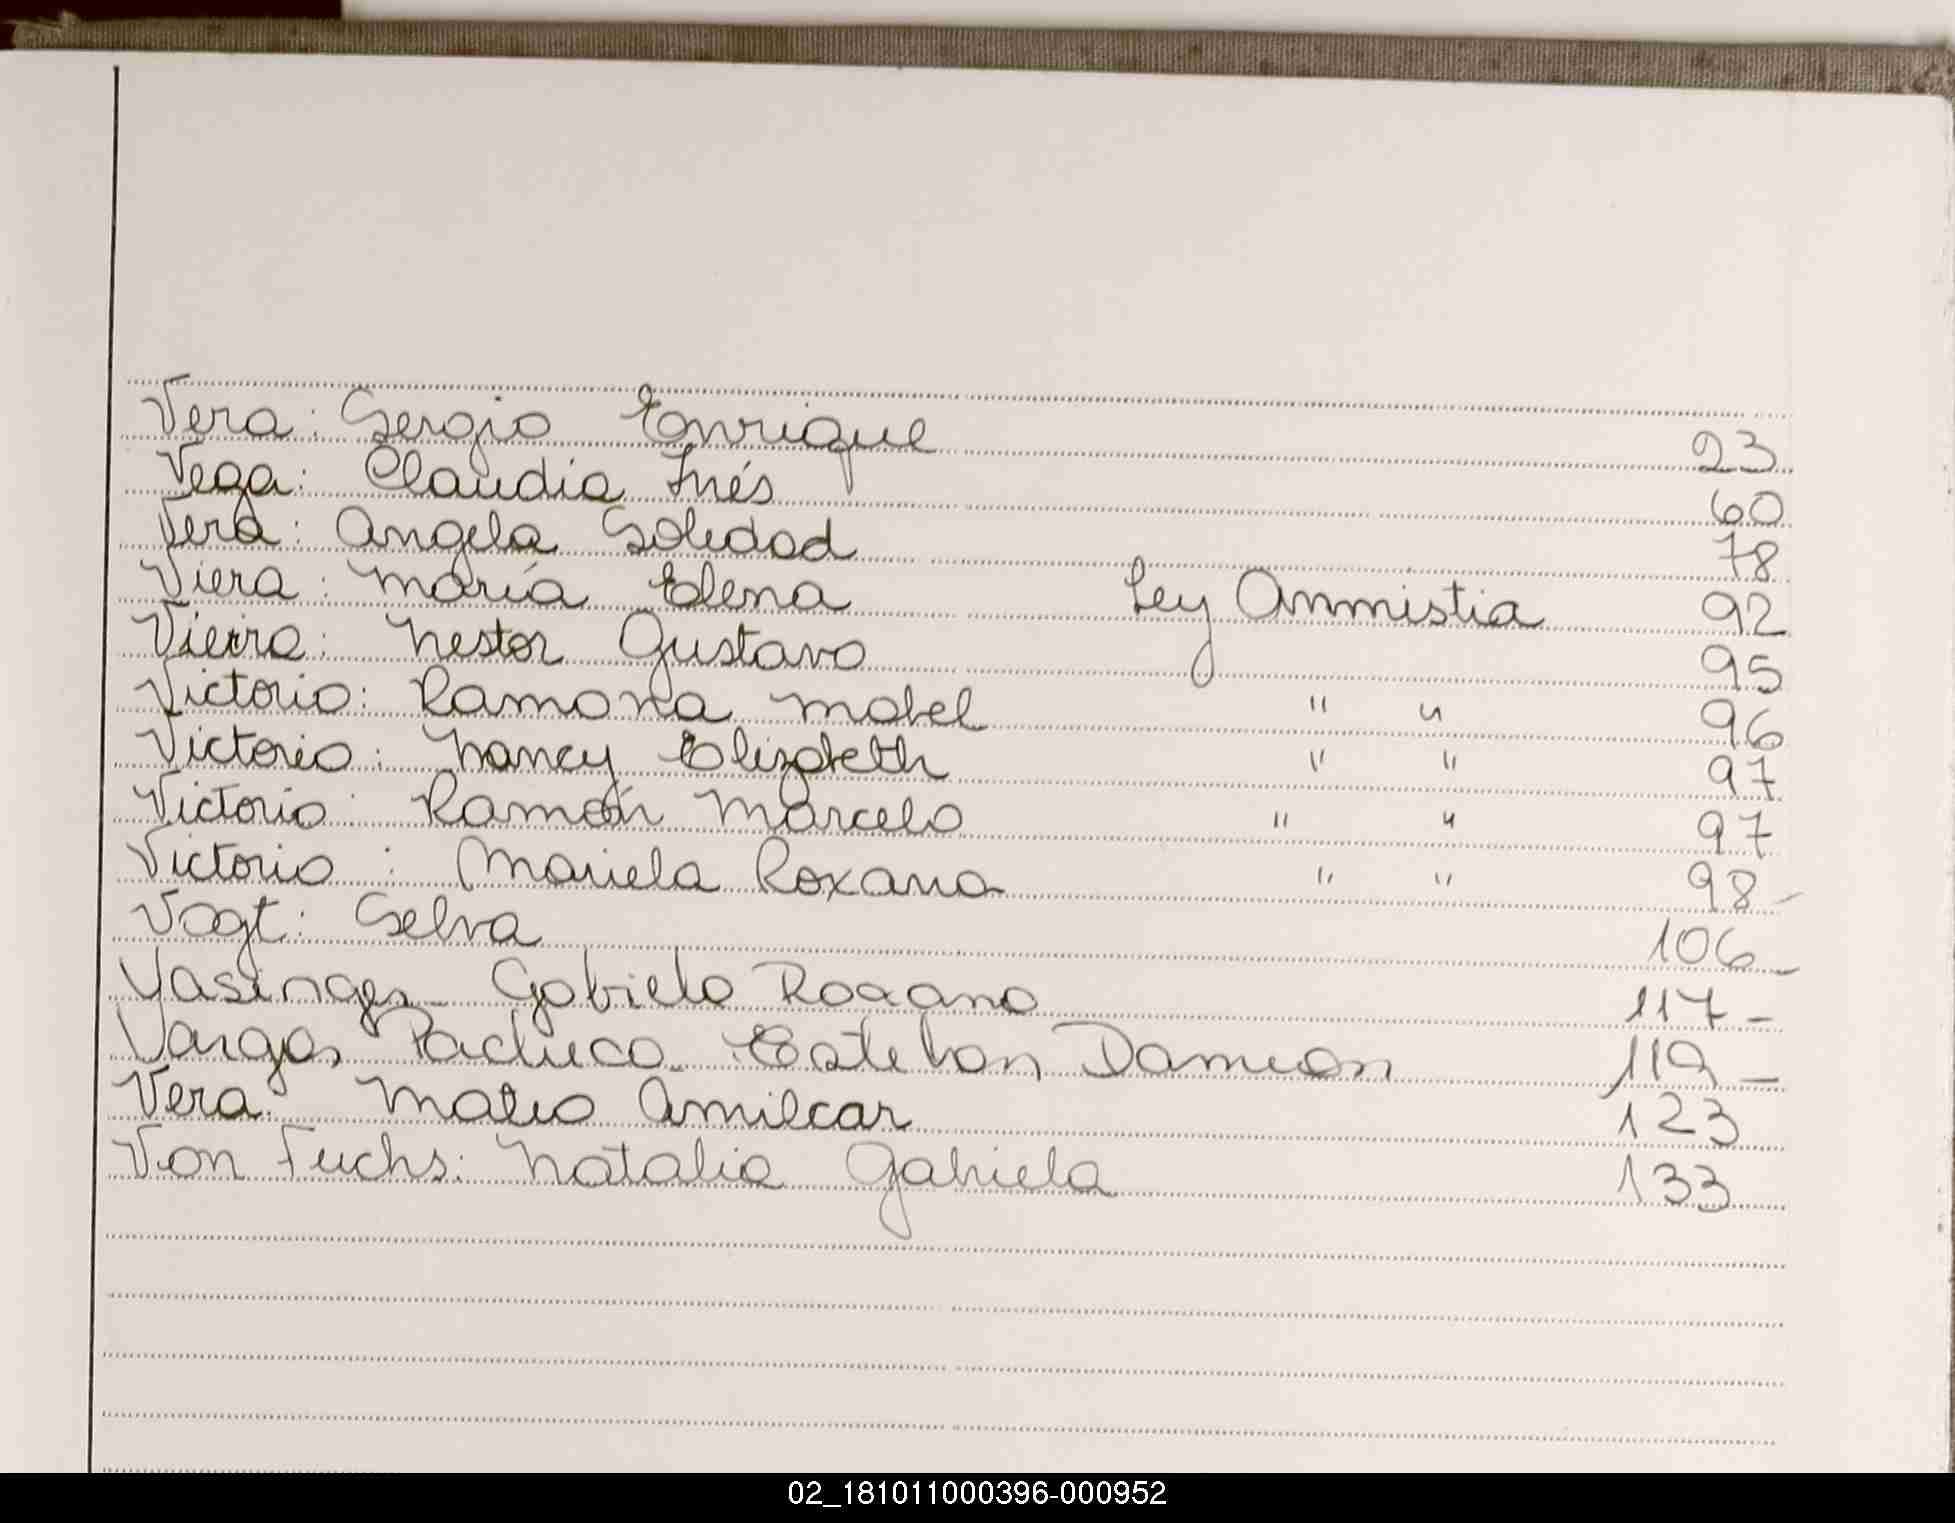 Vera: Sergio Enrique 23
Vega: Claudia Inés 60
Vera: Angela Soledad 78
Viera: Maria Elena Ley Ammistia 92
Vieira: Nestor Gustavo 95
Victorio: Ramona Mabel " " 96
Victorio: Nancy Elizabeth " " 97
Victorio: Ramón Marcelo " " 97
Victorio: Mariela Roxana " " 98-
Vogt: Selva 106-
Vasinger Gabriela Roxana 117-
Vargas Pacheco Esteban Damian 119-
Vera: Mateo Amilcar 123
Von Fuchs: Natalia Gabriela 133
02_181011000396-000952